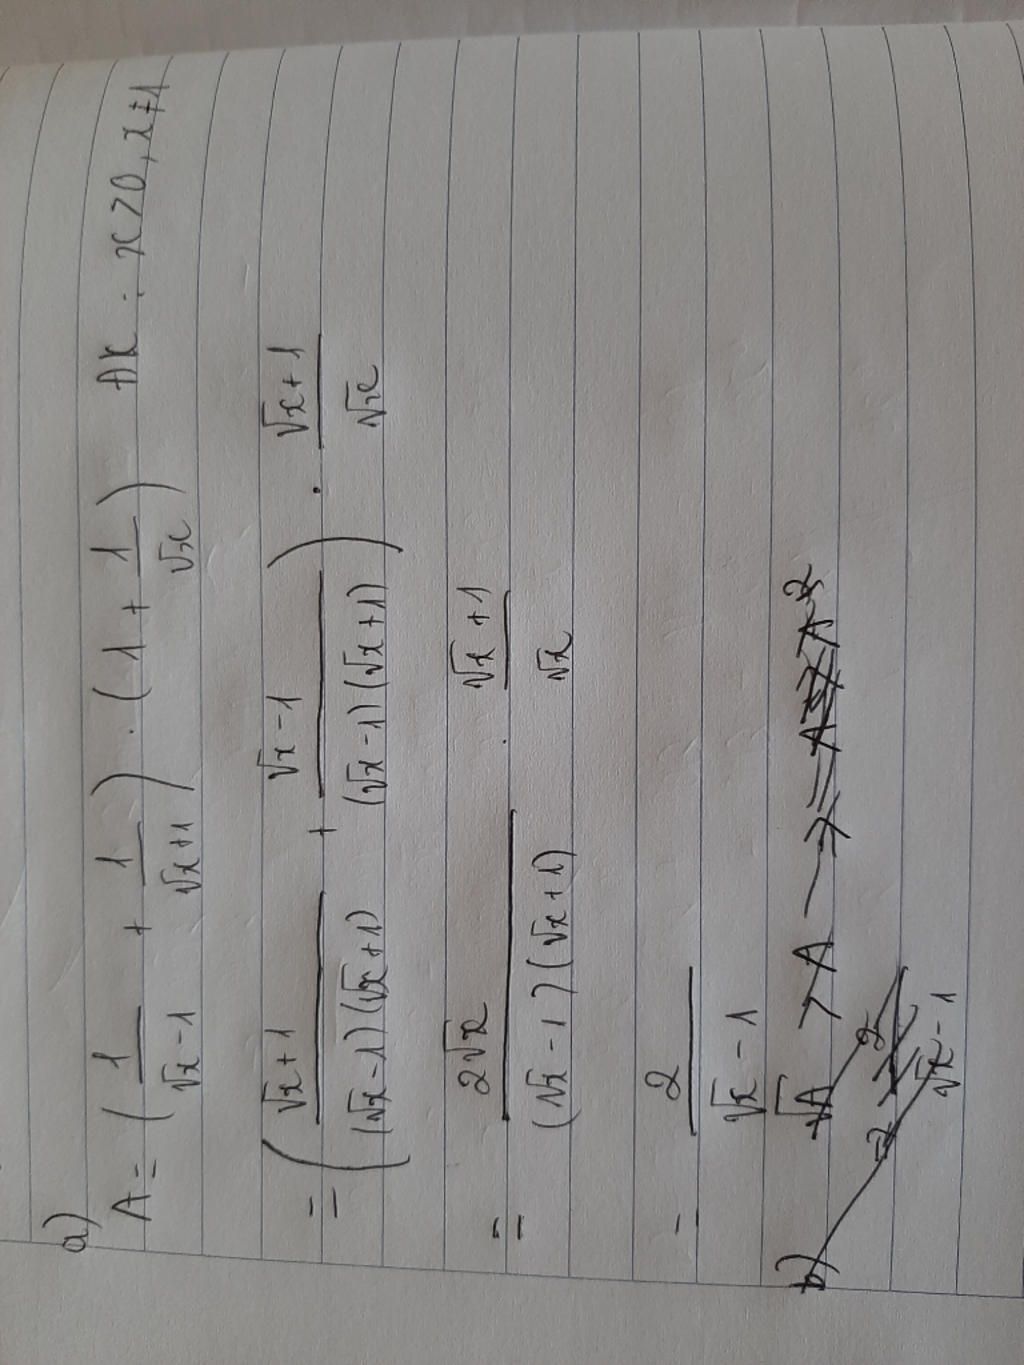 a)
A = (1/(√x-1) + 1/(√x+1)) . (1 + 1/√x) ĐK : x>0, x≠1
= ((√x+1)/((√x-1)(√x+1)) + (√x-1)/((√x-1)(√x+1))) . (√x+1)/√x
= 2√x/((√x-1)(√x+1)) . (√x+1)/√x
= 2/(√x-1)
b) √A > A
2/(√x-1)